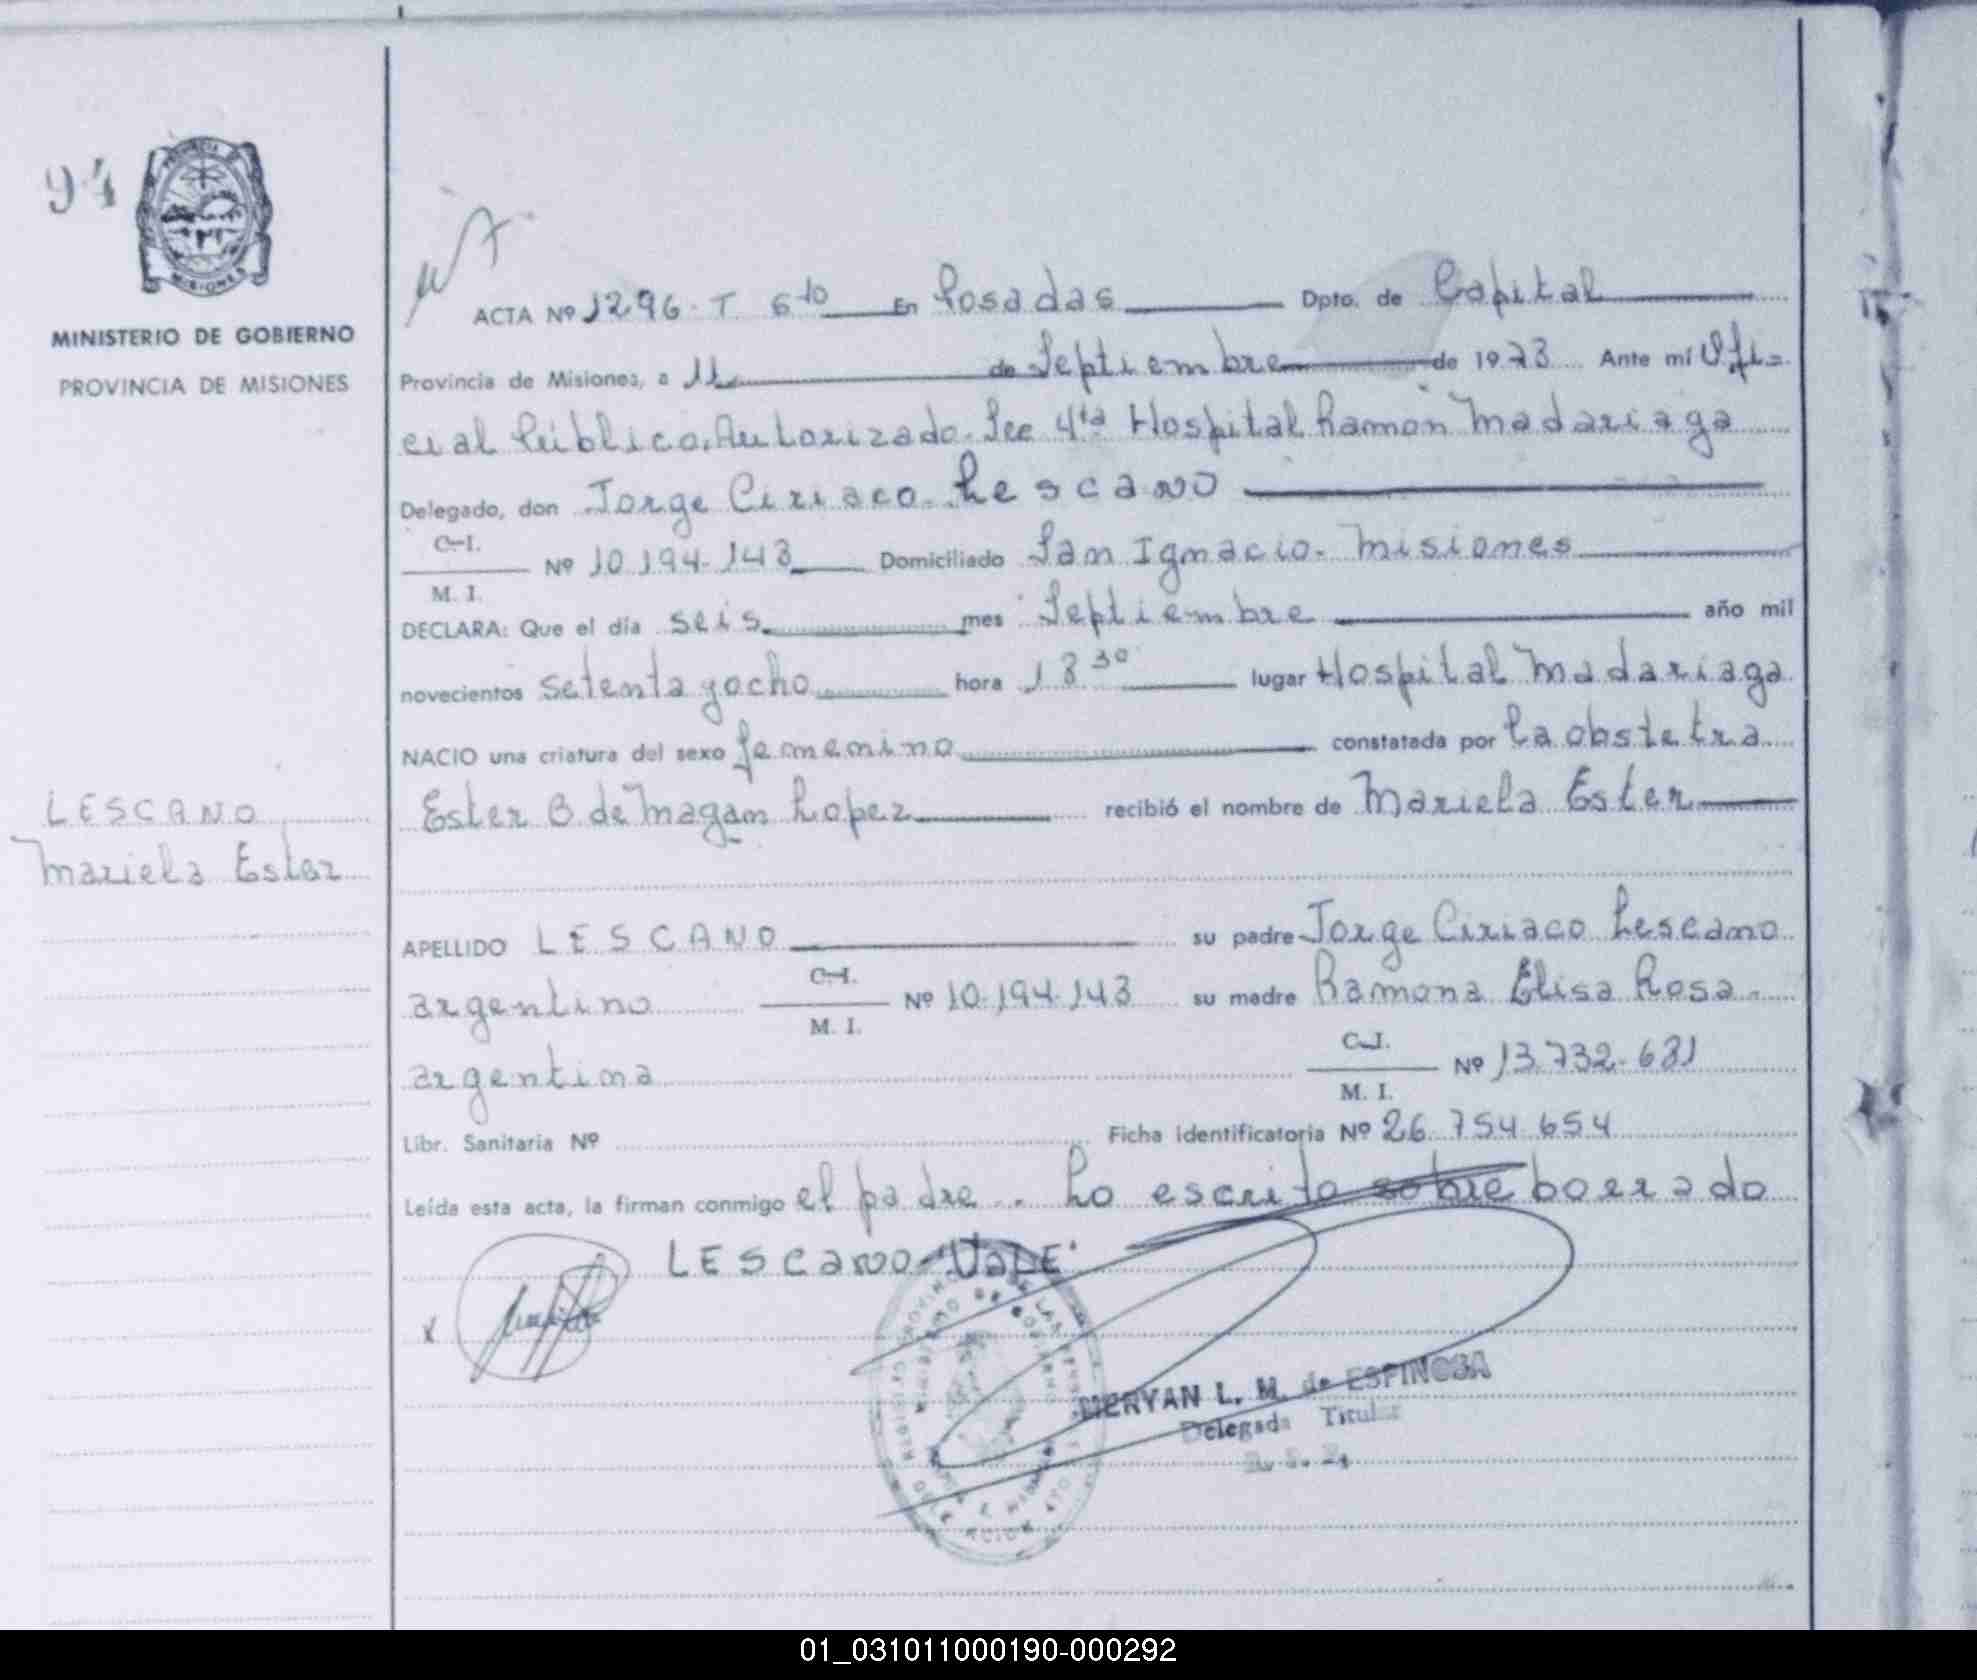 94
PROVINCIA DE
MISIONES
MINISTERIO DE GOBIERNO
PROVINCIA DE MISIONES
LESCANO
Mariela Ester
ACTA Nº 1296. T 6to En Posadas Dpto. de Capital
Provincia de Misiones, a 11 de Septiembre de 1978 Ante mí Ofi=
cial Público. Autorizado. Sec 4ta Hospital Ramón Madariaga
Delegado, don Jorge Ciriaco Lescano
C.I.
M. I.
Nº 10.194.143 Domiciliado San Ignacio. Misiones
DECLARA: Que el día seis mes Septiembre año mil
novecientos setenta y ocho hora 18 30 lugar Hospital Madariaga
NACIO una criatura del sexo femenino constatada por La obstetra
Ester B de Magan Lopez recibió el nombre de Mariela Ester
APELLIDO LESCANO su padre Jorge Ciriaco Lescano
argentino C.I. M. I. Nº 10.194.143 su madre Ramona Elisa Rosa
argentina C.I. M. I. Nº 13.732.681
Libr. Sanitaria Nº Ficha identificatoria Nº 26 754 654
Leída esta acta, la firman conmigo el padre.. Lo escrito sobre borrado
LESCANO "VALE"
X
MERYAN L. M. de ESPINOSA
Delegada Titular
01_031011000190-000292